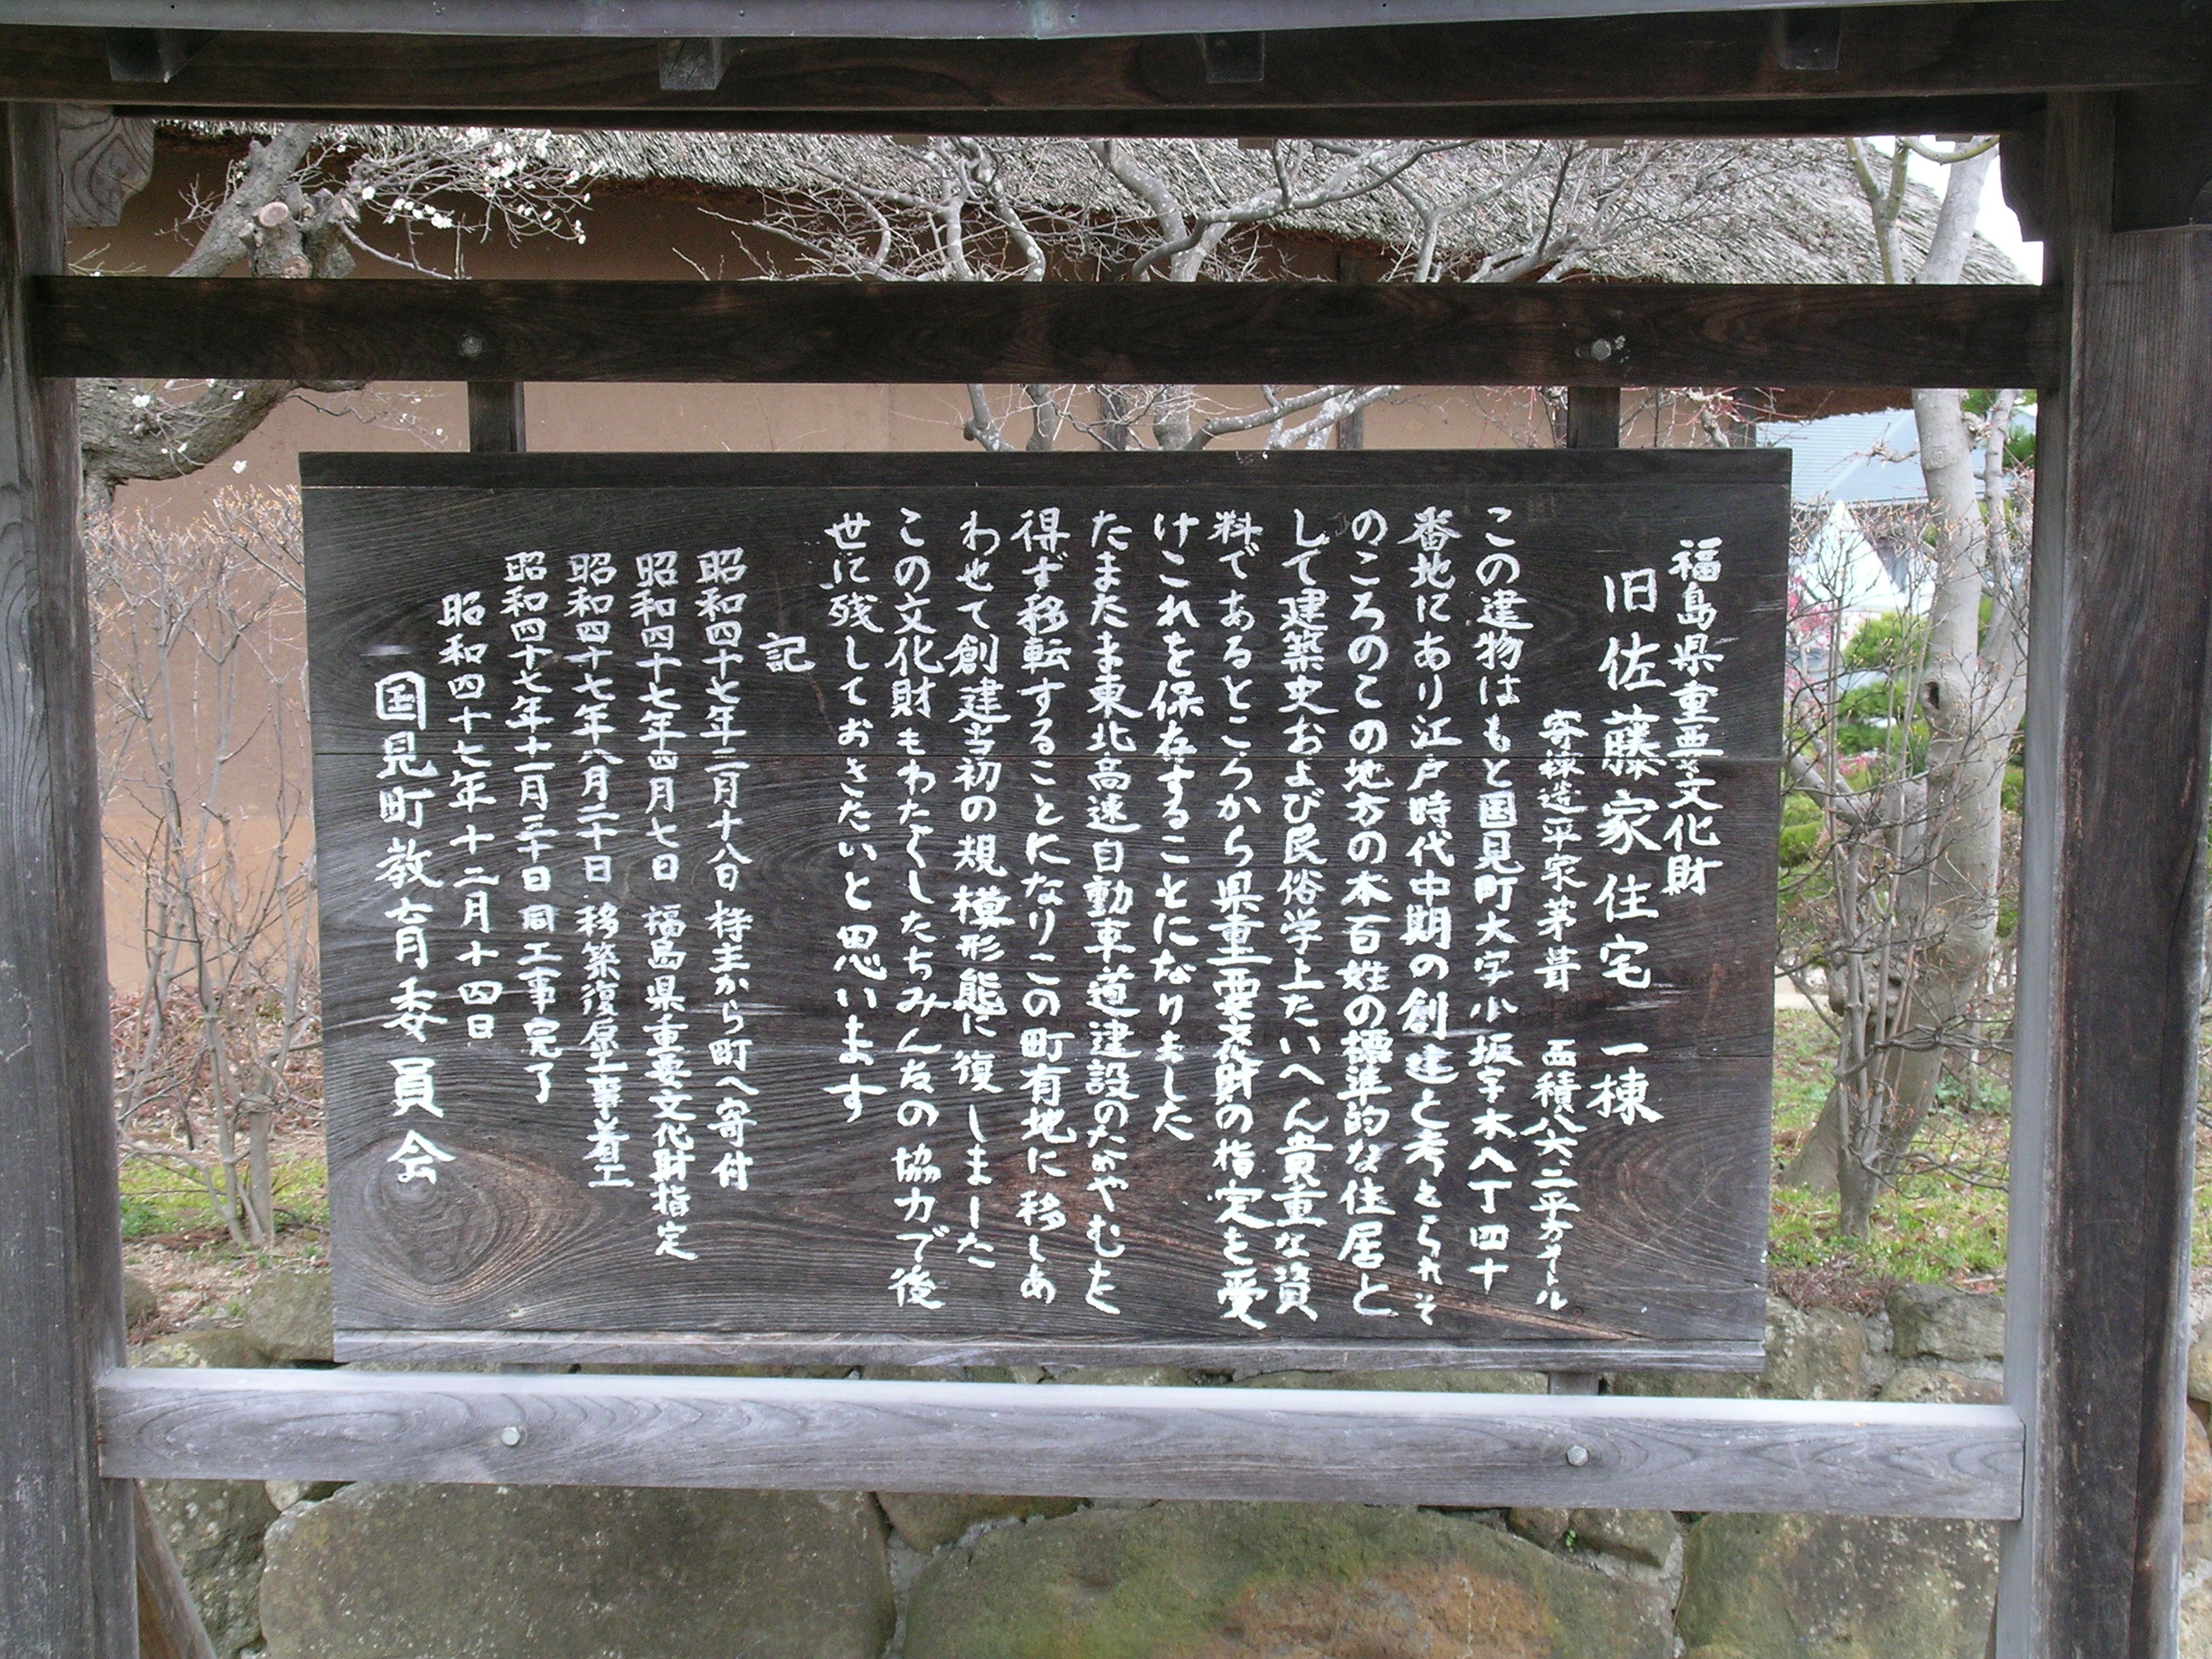 福島県重要文化財
旧佐藤家住宅 一棟
寄棟造平家茅葺 面積八六・二平方メートル
この建物はもと国見町大字小坂字木八丁四十
番地にあり江戸時代中期の創建と考えられそ
のころのこの地方の本百姓の標準的な住居と
して建築史および民俗学上たいへん貴重な資
料であるところから県重要文化財の指定を受
けこれを保存することになりました
たまたま東北高速自動車道建設のためやむを
得ず移転することになりこの町有地に移しあ
わせて創建当初の規模形態に復しました
この文化財もわたくしたちみんなの協力で後
世に残しておきたいと思います
記
昭和四十七年二月十八日 持主から町へ寄付
昭和四十七年四月七日 福島県重要文化財指定
昭和四十七年八月二十日 移築復原工事着工
昭和四十七年十一月三十日 同工事完了
昭和四十七年十二月十四日
国見町教育委員会